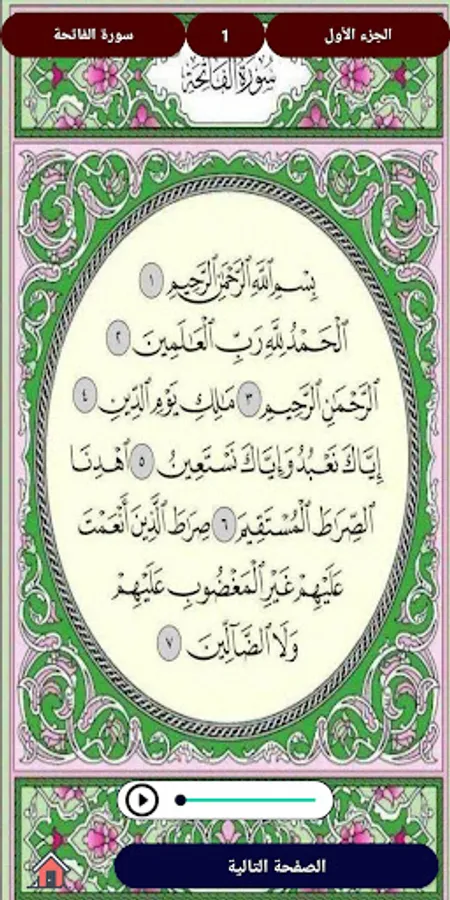 الجزء الأول
1
سورة الفاتحة
سُورَةُ الْفَاتِحَةِ
بِسْمِ ٱللَّهِ ٱلرَّحْمَٰنِ ٱلرَّحِيمِ ١
ٱلْحَمْدُ لِلَّهِ رَبِّ ٱلْعَٰلَمِينَ ٢
ٱلرَّحْمَٰنِ ٱلرَّحِيمِ ٣ مَٰلِكِ يَوْمِ ٱلدِّينِ ٤
إِيَّاكَ نَعْبُدُ وَإِيَّاكَ نَسْتَعِينُ ٥ ٱهْدِنَا
ٱلصِّرَٰطَ ٱلْمُسْتَقِيمَ ٦ صِرَٰطَ ٱلَّذِينَ أَنْعَمْتَ
عَلَيْهِمْ غَيْرِ ٱلْمَغْضُوبِ عَلَيْهِمْ
وَلَا ٱلضَّآلِّينَ ٧
الصفحة التالية